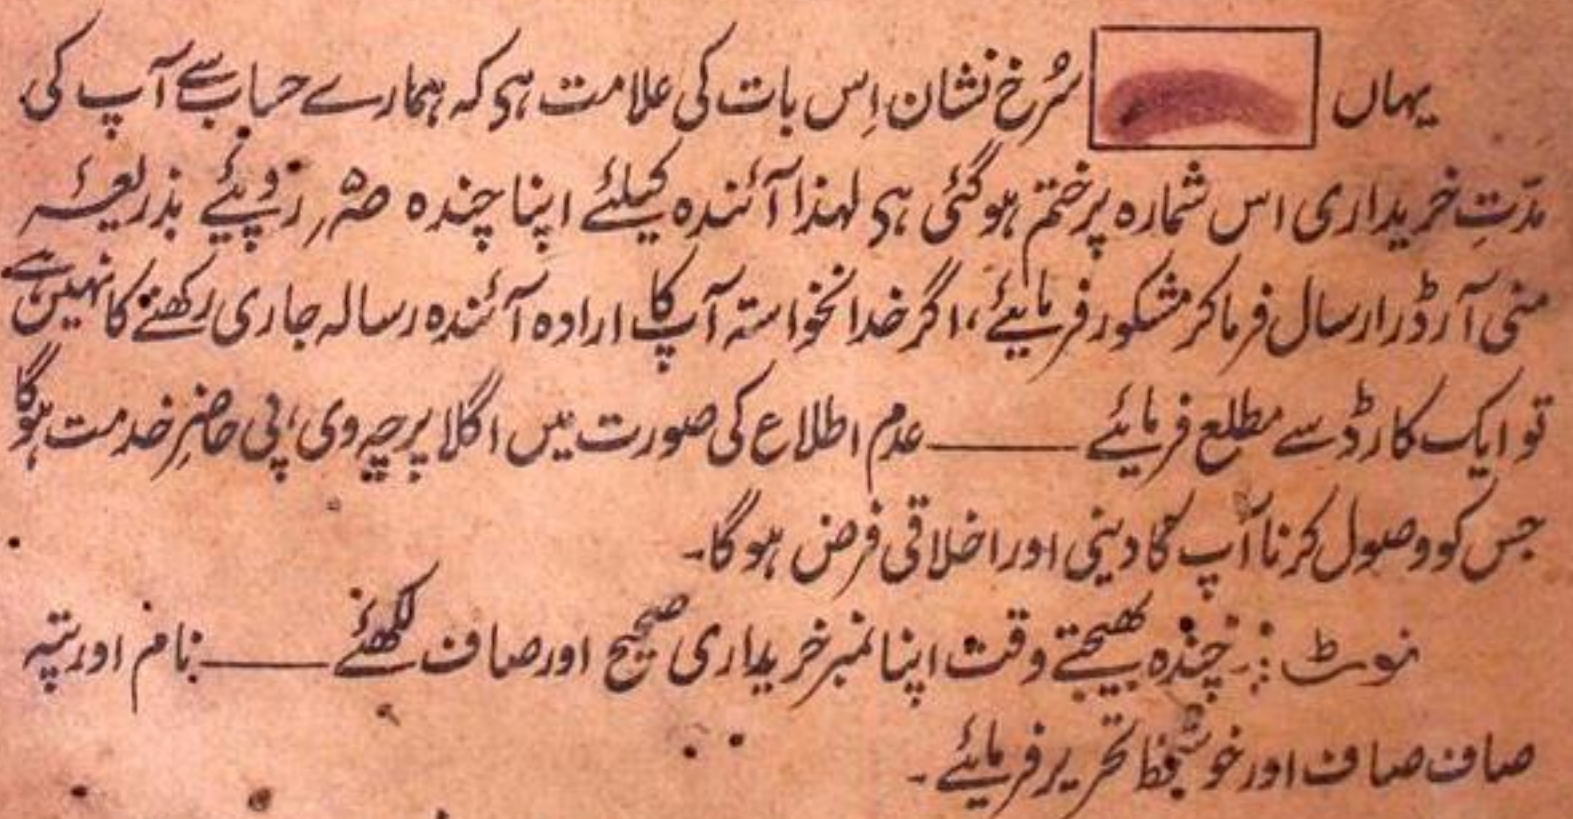 یہاں سُرخ نشان اِس بات کی علامت ہی کہ ہمارے حساب سے آپ کی
مدّتِ خریداری اس شمارہ پر ختم ہوگئی ہی لہذا آئندہ کیلئے اپنا چندہ روپیئے بذریعۂ
منی آرڈر ارسال فرما کر مشکور فرمایئے، اگر خدانخواستہ آپ کا ارادہ آئندہ رسالہ جاری رکھنے کا نہیں ہے
تو ایک کارڈ سے مطلع فرمایئے ـــــــ عدم اطلاع کی صورت میں اگلا پرچہ وی، پی حاضرِ خدمت ہوگا
جس کو وصول کرنا آپ کا دینی اور اخلاقی فرض ہو گا۔
نوٹ:۔ چندہ بھیجتے وقت اپنا نمبر خریداری صحیح اور صاف لکھئے ـــــــ نام اور پتہ
صاف صاف اور خوشخط تحریر فرمایئے ۔